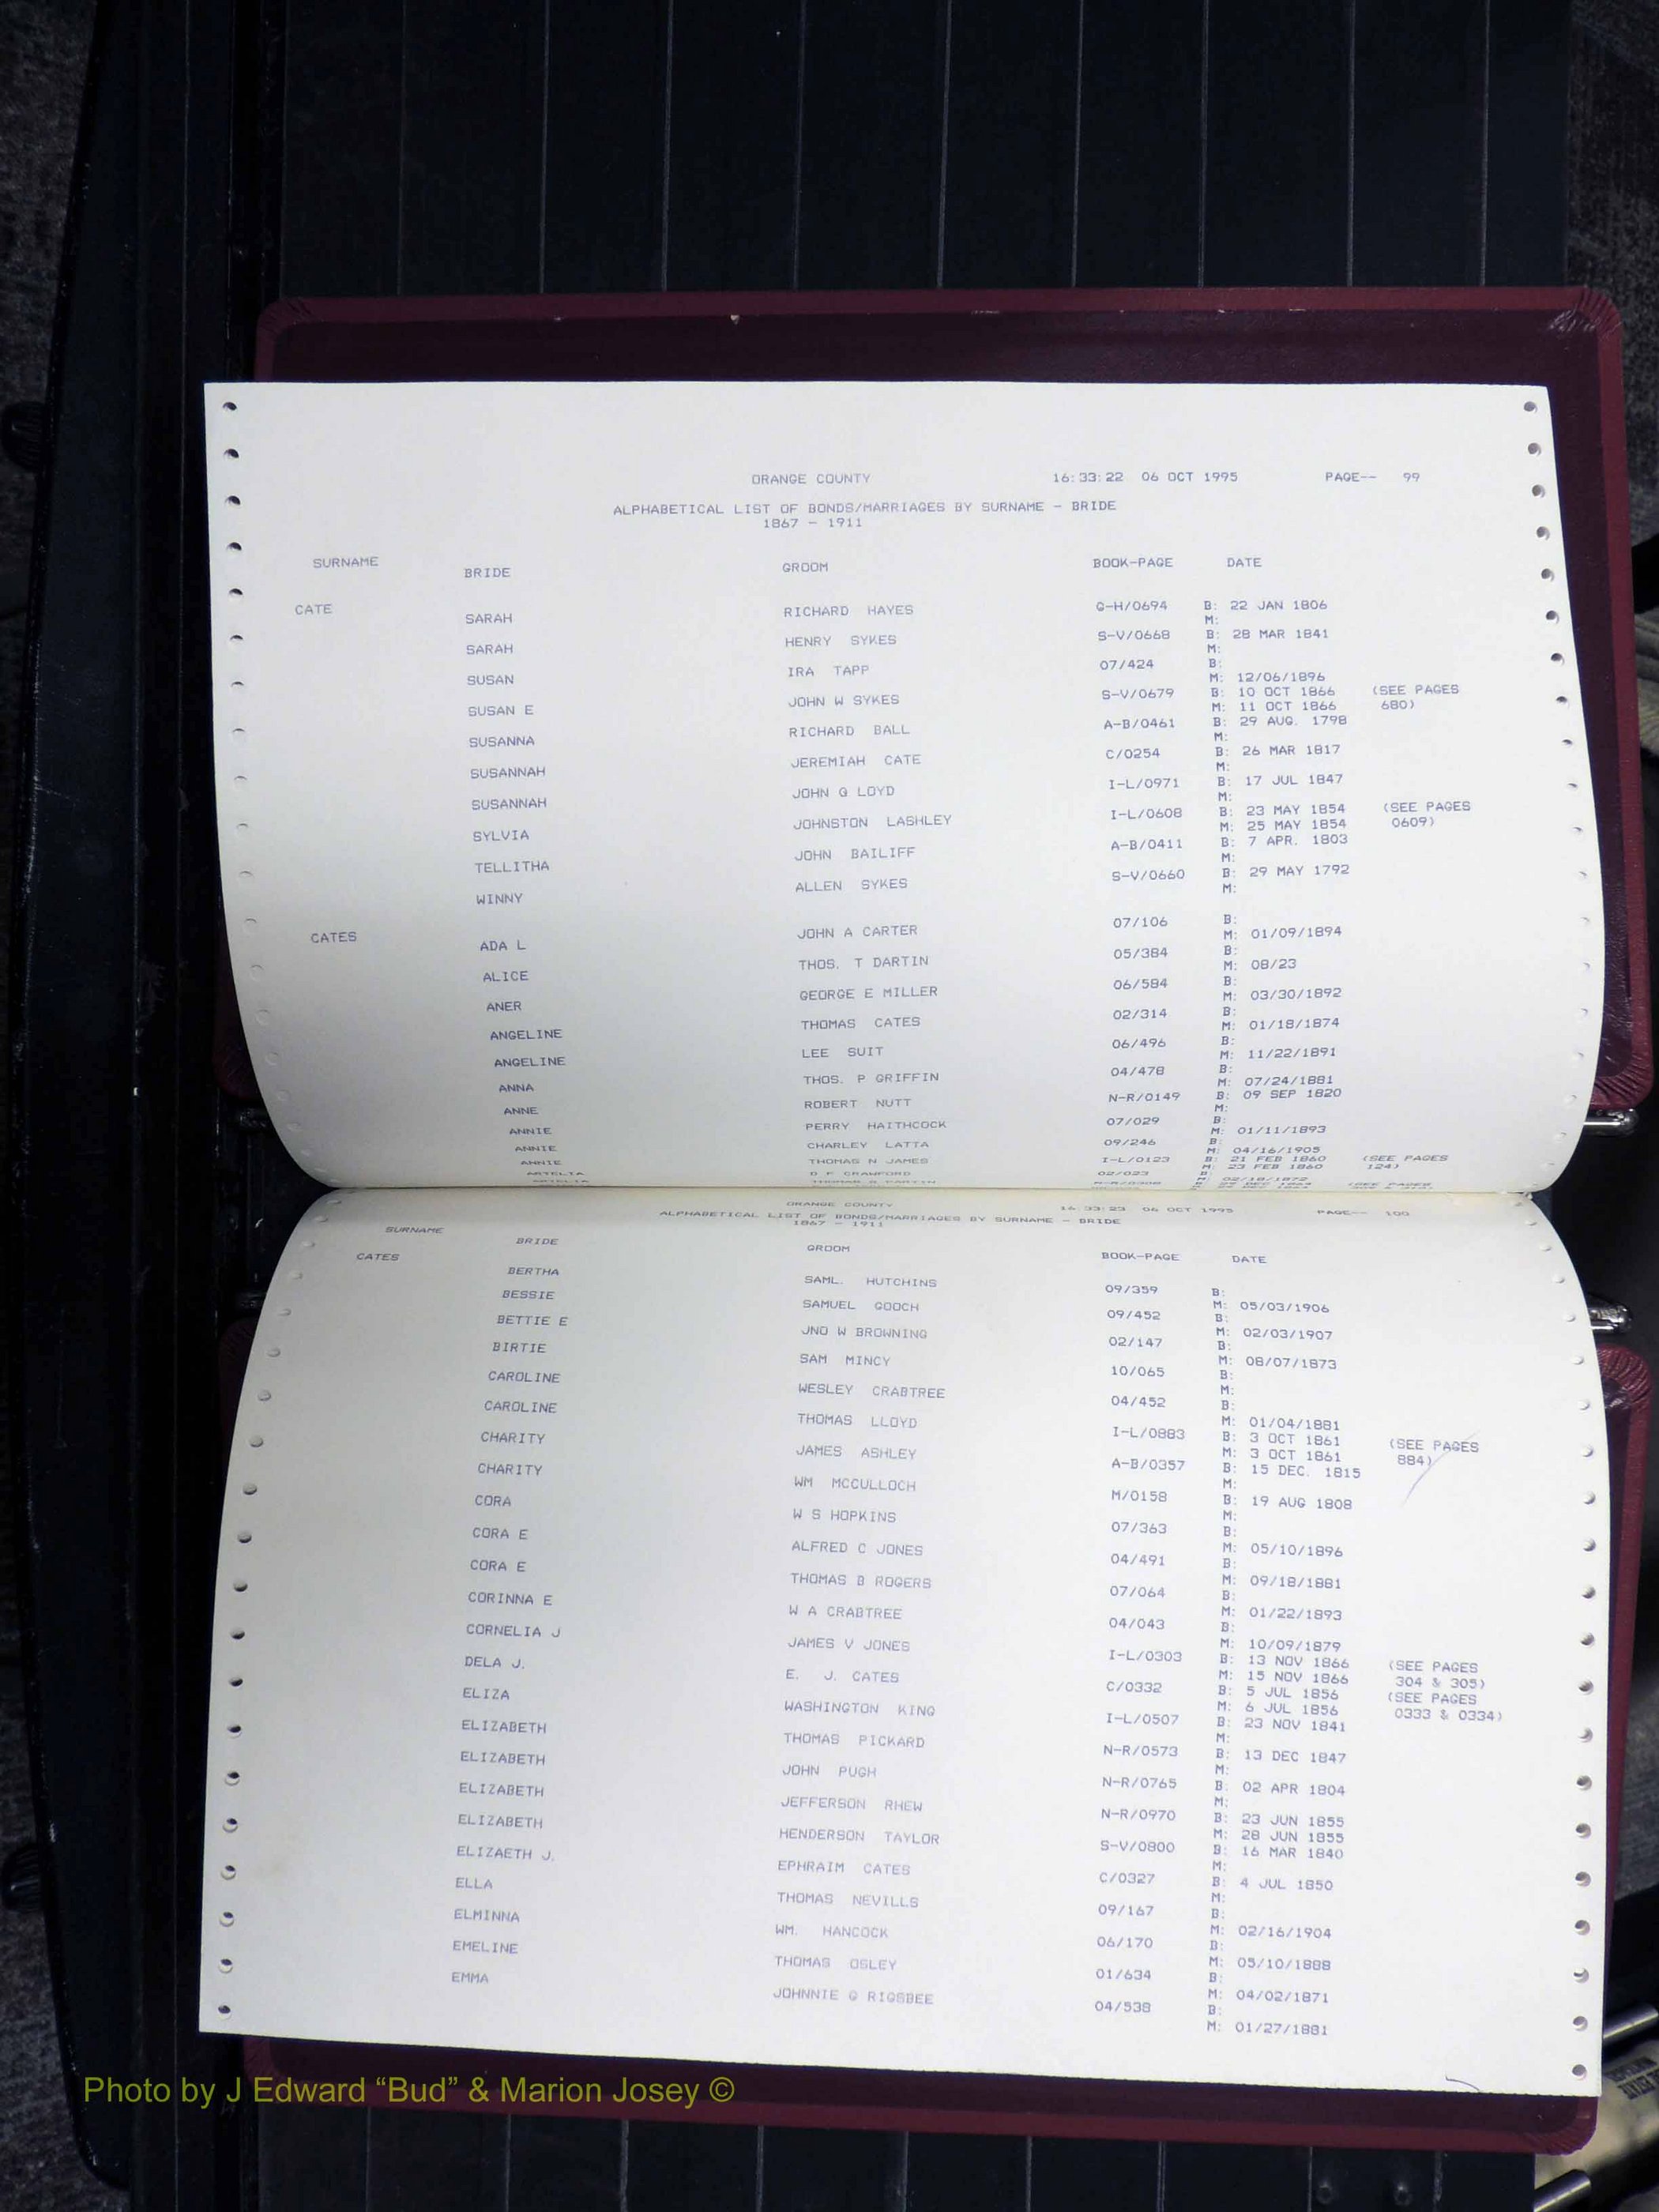 ORANGE COUNTY 16:33:22 06 OCT 1995 PAGE-- 99
ALPHABETICAL LIST OF BONDS/MARRIAGES BY SURNAME - BRIDE
1867 - 1911
SURNAME BRIDE GROOM BOOK-PAGE DATE
CATE SARAH RICHARD HAYES G-H/0694 B: 22 JAN 1806
M:
SARAH HENRY SYKES S-V/0668 B: 28 MAR 1841
M:
SUSAN IRA TAPP 07/424 B:
M: 12/06/1896
SUSAN E JOHN W SYKES S-V/0679 B: 10 OCT 1866 (SEE PAGES
M: 11 OCT 1866 680)
SUSANNA RICHARD BALL A-B/0461 B: 29 AUG. 1798
M:
SUSANNAH JEREMIAH CATE C/0254 B: 26 MAR 1817
M:
SUSANNAH JOHN G LOYD I-L/0971 B: 17 JUL 1847
M:
SYLVIA JOHNSTON LASHLEY I-L/0608 B: 23 MAY 1854 (SEE PAGES
M: 25 MAY 1854 0609)
TELLITHA JOHN BAILIFF A-B/0411 B: 7 APR. 1803
M:
WINNY ALLEN SYKES S-V/0660 B: 29 MAY 1792
M:
CATES ADA L JOHN A CARTER 07/106 B:
M: 01/09/1894
ALICE THOS. T DARTIN 05/384 B:
M: 08/23
ANER GEORGE E MILLER 06/584 B:
M: 03/30/1892
ANGELINE THOMAS CATES 02/314 B:
M: 01/18/1874
ANGELINE LEE SUIT 06/496 B:
M: 11/22/1891
ANNA THOS. P GRIFFIN 04/478 B:
M: 07/24/1881
ANNE ROBERT NUTT N-R/0149 B: 09 SEP 1820
M:
ANNIE PERRY HAITHCOCK 07/029 B:
M: 01/11/1893
ANNIE CHARLEY LATTA 09/246 B:
M: 04/16/1905
ANNIE THOMAS N JAMES I-L/0123 B: 21 FEB 1860 (SEE PAGES
M: 23 FEB 1860 124)
ARTELIA D F CRAWFORD 02/023 B:
M: 02/18/1872
ORANGE COUNTY 16:33:23 06 OCT 1995 PAGE-- 100
ALPHABETICAL LIST OF BONDS/MARRIAGES BY SURNAME - BRIDE
1867 - 1911
SURNAME BRIDE GROOM BOOK-PAGE DATE
CATES BERTHA SAML. HUTCHINS 09/359 B:
M: 05/03/1906
BESSIE SAMUEL GOOCH 09/452 B:
M: 02/03/1907
BETTIE E JNO W BROWNING 02/147 B:
M: 08/07/1873
BIRTIE SAM MINCY 10/065 B:
M:
CAROLINE WESLEY CRABTREE 04/452 B:
M: 01/04/1881
CAROLINE THOMAS LLOYD I-L/0883 B: 3 OCT 1861 (SEE PAGES
M: 3 OCT 1861 884)
CHARITY JAMES ASHLEY A-B/0357 B: 15 DEC. 1815
M:
CHARITY WM MCCULLOCH M/0158 B: 19 AUG 1808
M:
CORA W S HOPKINS 07/363 B:
M: 05/10/1896
CORA E ALFRED C JONES 04/491 B:
M: 09/18/1881
CORA E THOMAS B ROGERS 07/064 B:
M: 01/22/1893
CORINNA E W A CRABTREE 04/043 B:
M: 10/09/1879
CORNELIA J JAMES V JONES I-L/0303 B: 13 NOV 1866 (SEE PAGES
M: 15 NOV 1866 304 & 305)
DELA J. E. J. CATES C/0332 B: 5 JUL 1856 (SEE PAGES
M: 6 JUL 1856 0333 & 0334)
ELIZA WASHINGTON KING I-L/0507 B: 23 NOV 1841
M:
ELIZABETH THOMAS PICKARD N-R/0573 B: 13 DEC 1847
M:
ELIZABETH JOHN PUGH N-R/0765 B: 02 APR 1804
M:
ELIZABETH JEFFERSON RHEW N-R/0970 B: 23 JUN 1855
M: 28 JUN 1855
ELIZABETH HENDERSON TAYLOR S-V/0800 B: 16 MAR 1840
M:
ELIZAETH J. EPHRAIM CATES C/0327 B: 4 JUL 1850
M:
ELLA THOMAS NEVILLS 09/167 B:
M: 02/16/1904
ELMINNA WM. HANCOCK 06/170 B:
M: 05/10/1888
EMELINE THOMAS OSLEY 01/634 B:
M: 04/02/1871
EMMA JOHNNIE G RIGSBEE 04/538 B:
M: 01/27/1881
Photo by J Edward “Bud” & Marion Josey ©